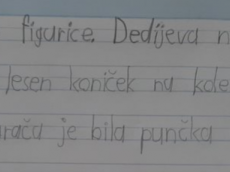 figurice. Dedijeva
lesen koniček na
je bila punčka